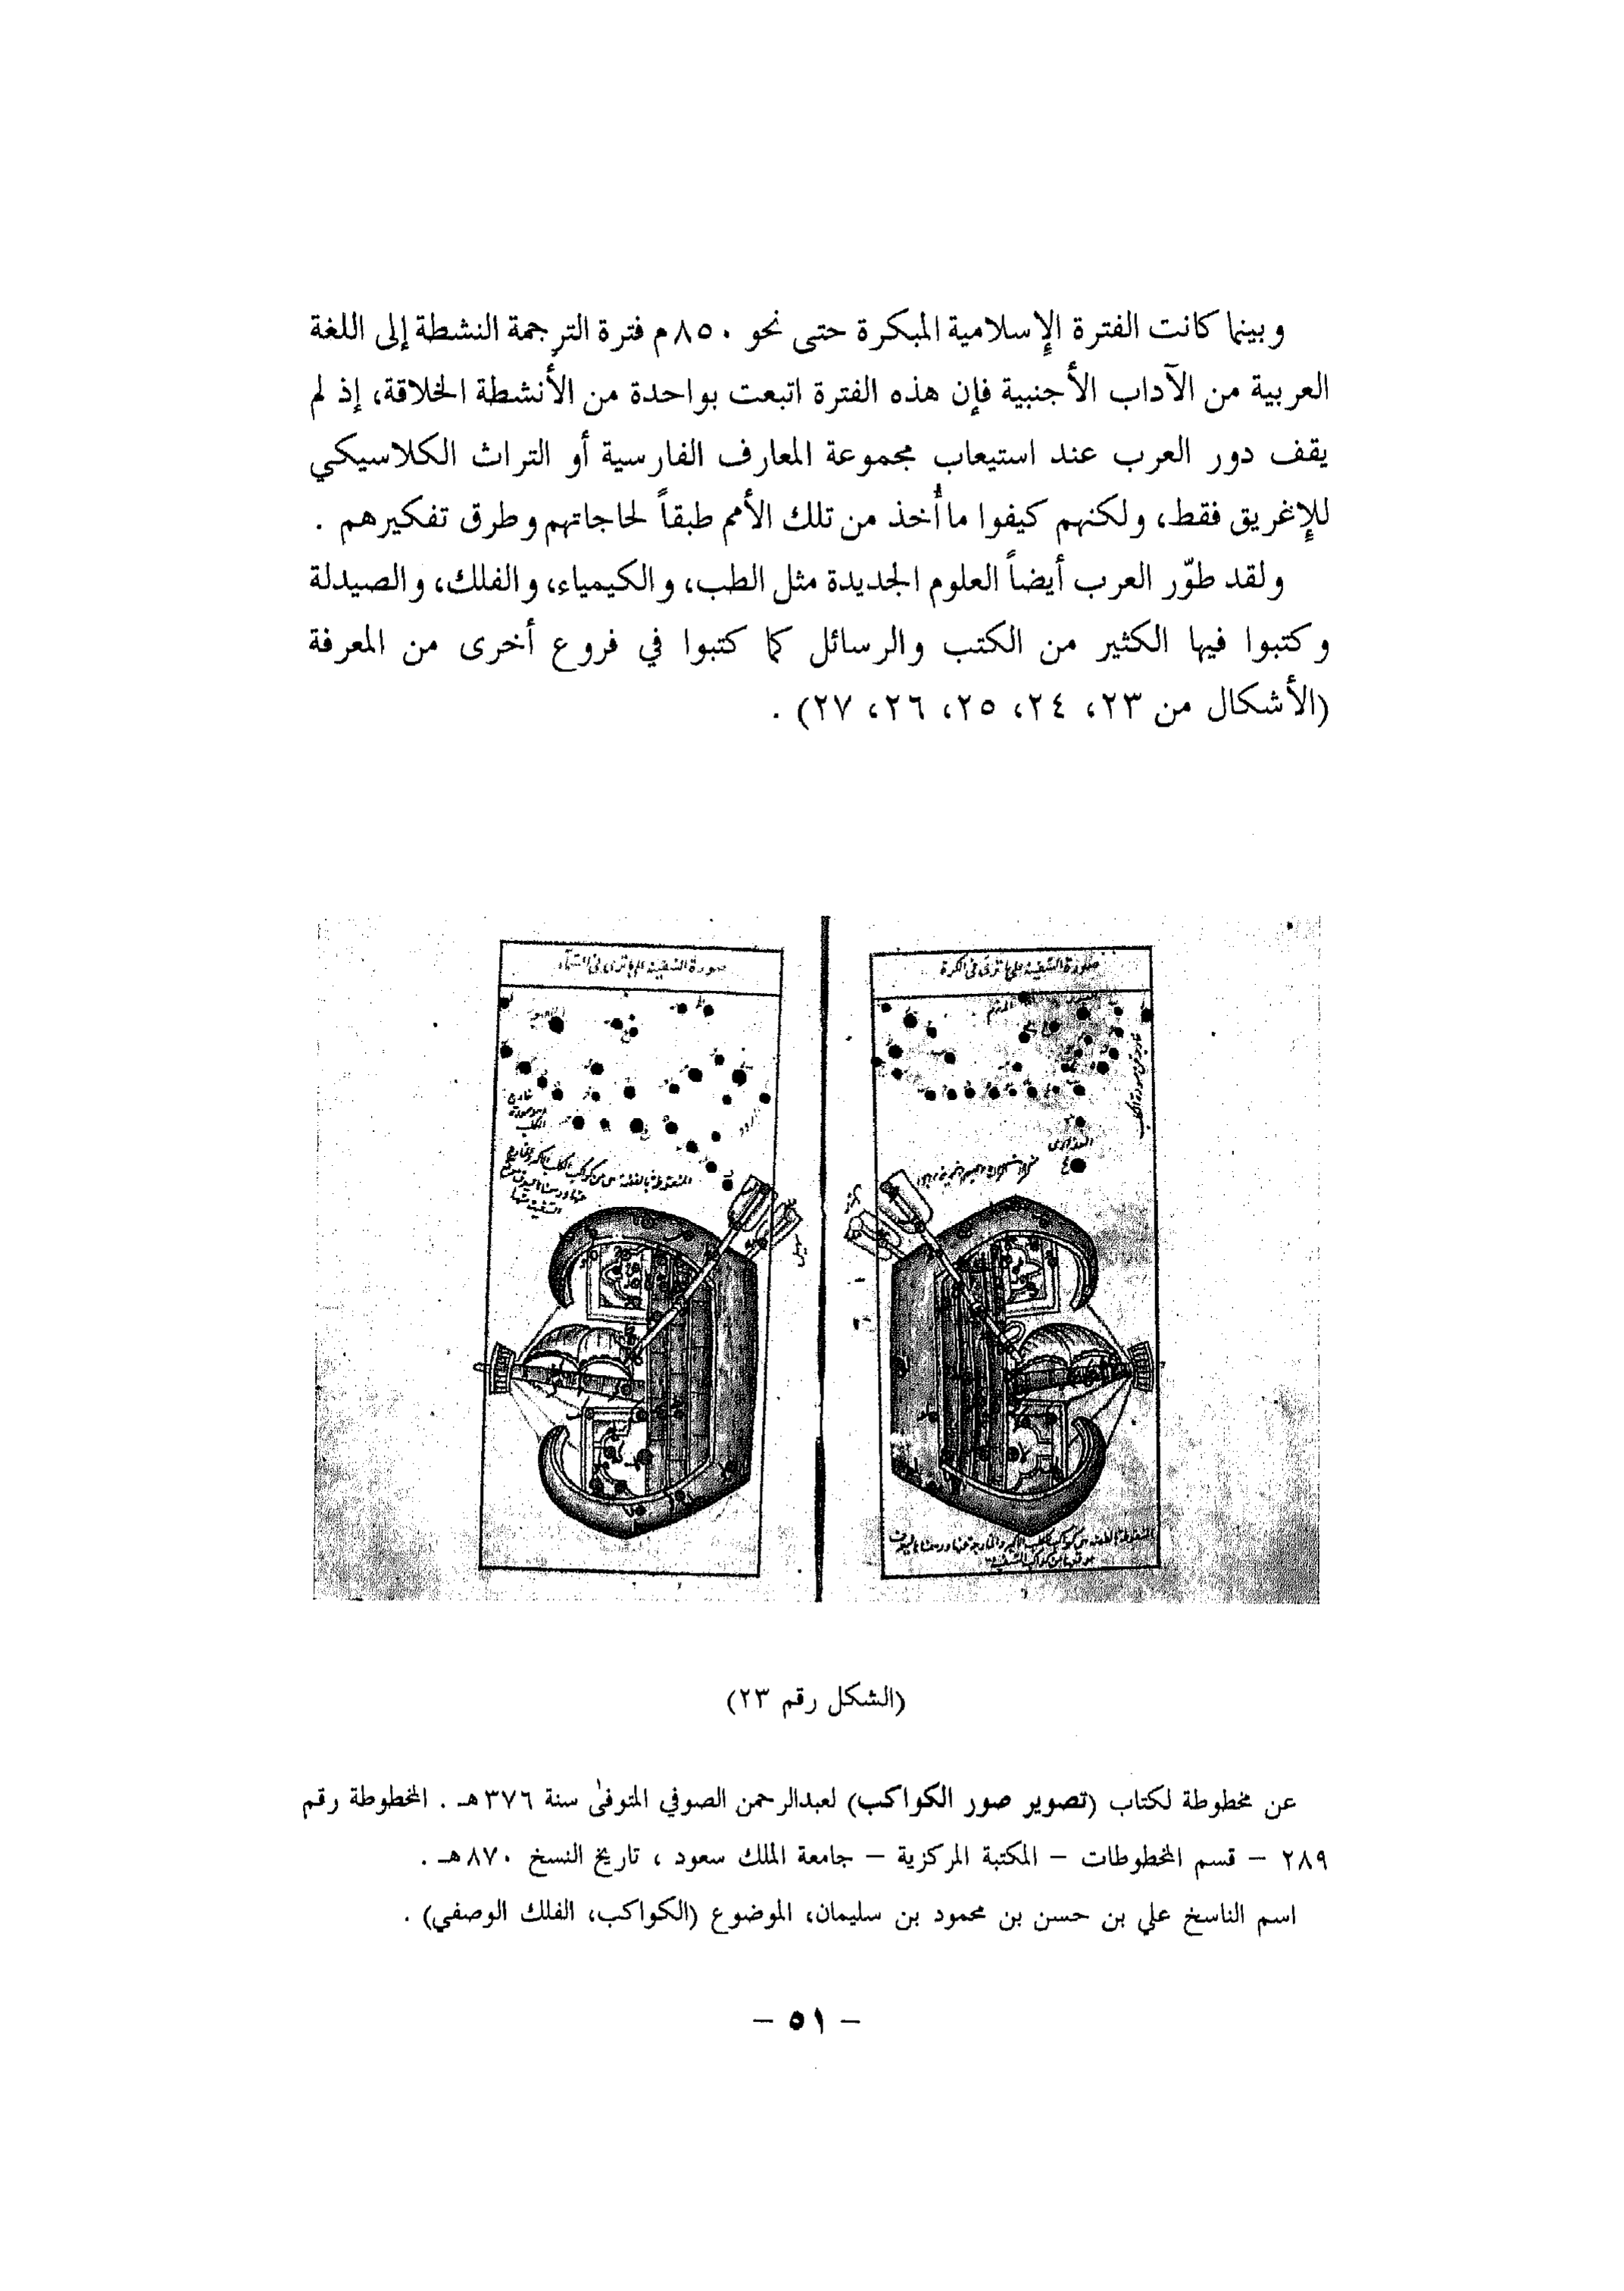 وبينما كانت الفترة الإسلامية المبكرة حتى نحو ٨٥٠م فترة الترجمة النشطة إلى اللغة
العربية من الآداب الأجنبية فإن هذه الفترة اتبعت بواحدة من الأنشطة الخلاقة، إذ لم
يقف دور العرب عند استيعاب مجموعة المعارف الفارسية أو التراث الكلاسيكي
للإغريق فقط، ولكنهم كيفوا ما أُخذ من تلك الأمم طبقاً لحاجاتهم وطرق تفكيرهم .
ولقد طوّر العرب أيضاً العلوم الجديدة مثل الطب، والكيمياء، والفلك، والصيدلة
وكتبوا فيها الكثير من الكتب والرسائل كما كتبوا في فروع أخرى من المعرفة
(الأشكال من ٢٣، ٢٤، ٢٥، ٢٦، ٢٧) .
صورة السفينة على ما ترى في الكرة
صورة السفينة على ما ترى في السماء
(الشكل رقم ٢٣)
عن مخطوطة لكتاب (تصوير صور الكواكب) لعبدالرحمن الصوفي المتوفىٰ سنة ٣٧٦هـ . المخطوطة رقم
٢٨٩ – قسم المخطوطات – المكتبة المركزية – جامعة الملك سعود ، تاريخ النسخ ٨٧٠هـ .
اسم الناسخ علي بن حسن بن محمود بن سليمان، الموضوع (الكواكب، الفلك الوصفي) .
– ٥١ –